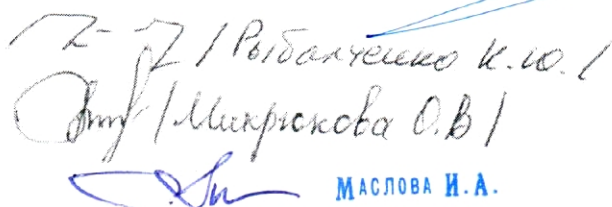 / Рыбалченко К.Ю. /
/ Микрюкова О.В /
МАСЛОВА И.А.